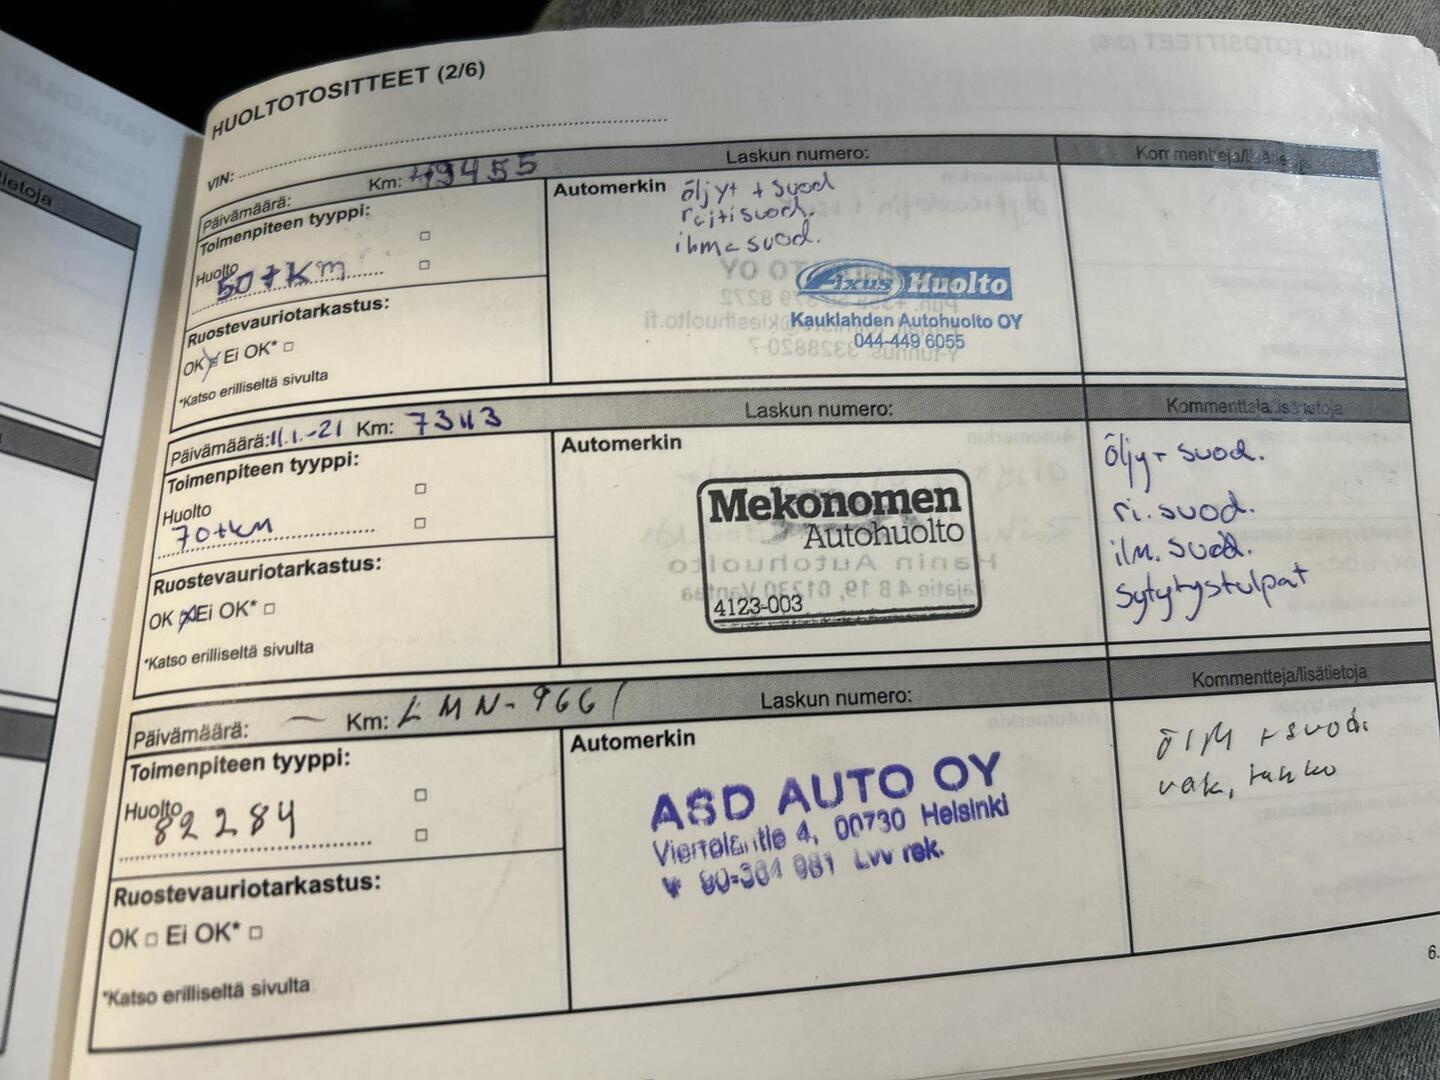 HUOLTOTOSITTEET (2/6)
VIN:
Päivämäärä: Km: 49455 Laskun numero: Kommentteja/lisätie
Toimenpiteen tyyppi:
Huolto
50 tkm
Ruostevauriotarkastus:
OK Ei OK*
*Katso erilliseltä sivulta
Automerkin
öljyt + suod
raitisuod.
ilma suod.
Axus Huolto
Kauklahden Autohuolto OY
044-449 6055
Päivämäärä: 11.1.-21 Km: 73113 Laskun numero: Kommentteja/lisätietoja
Toimenpiteen tyyppi:
Huolto
70 tkm
Ruostevauriotarkastus:
OK Ei OK*
*Katso erilliseltä sivulta
Automerkin
Mekonomen
Autohuolto
4123-003
öljy + suod.
ri. suod.
ilm. suod.
sytytystulpat
Päivämäärä: — Km: LMN-966 Laskun numero: Kommentteja/lisätietoja
Toimenpiteen tyyppi:
Huolto
82284
Ruostevauriotarkastus:
OK Ei OK*
*Katso erilliseltä sivulta
Automerkin
ASD AUTO OY
Viertolantie 4, 00730 Helsinki
981 Lvv rek.
+ suod.
6.